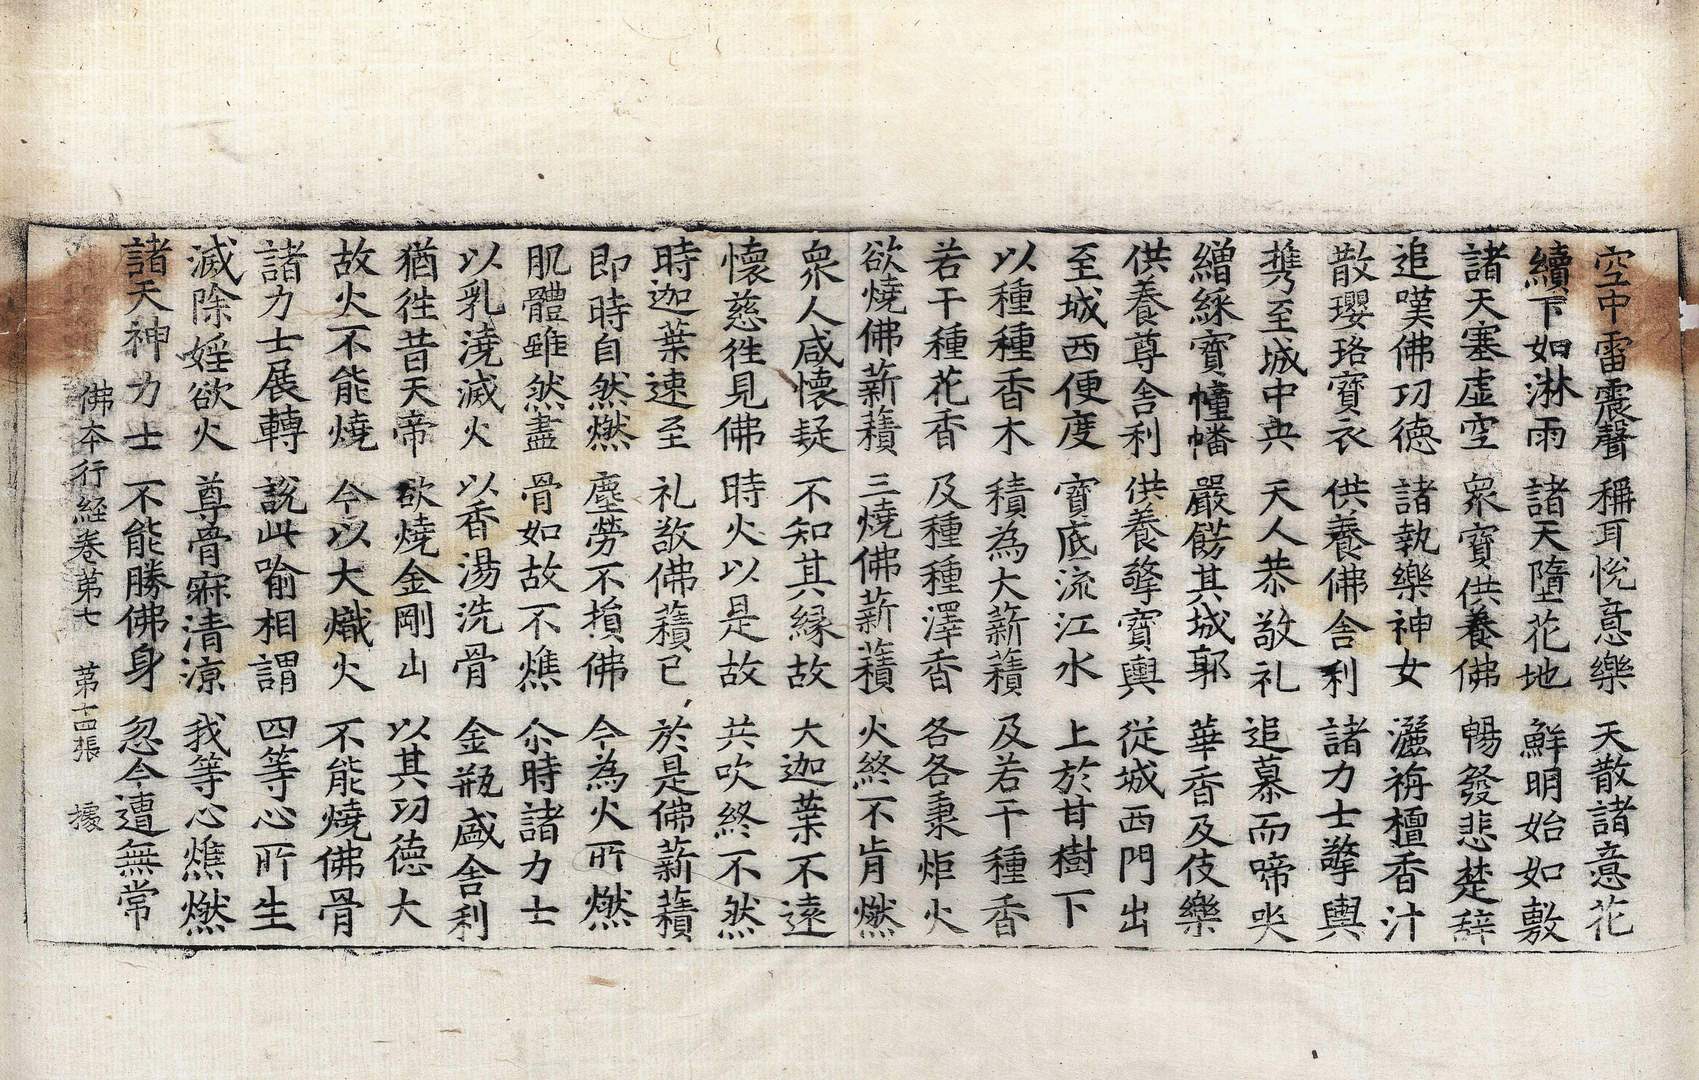 空中雷震聲 稱耳悅意樂 天散諸意花
續下如淋雨 諸天墮花地 鮮明始如敷
諸天塞虛空 衆寶供養佛 暢發悲楚辭
追嘆佛功德 諸執樂神女 灑栴檀香汁
散瓔珞寶衣 供養佛舍利 諸力士擎輿
擕至城中央 天人恭敬礼 追慕而啼哭
繒綵寶幢幡 嚴餝其城郭 華香及伎樂
供養尊舍利 供養擎寶輿 從城西門出
至城西便度 寶底流江水 上於甘樹下
以種種香木 積為大薪𧂐 及若干種香
若干種花香 及種種澤香 各各秉炬火
欲燒佛薪𧂐 三燒佛薪𧂐 火終不肯燃
衆人咸懷疑 不知其緣故 大迦葉不遠
懷慈徃見佛 時火以是故 共吹終不然
時迦葉速至 礼敬佛𧂐已 於是佛薪𧂐
即時自然燃 塵勞不損佛 今為火所燃
肌體雖然盡 骨如故不燋 尒時諸力士
以乳澆滅火 以香湯洗骨 金瓶盛舍利
猶徃昔天帝 欲燒金剛山 以其功德大
故火不能燒 今以大熾火 不能燒佛骨
諸力士展轉 說此喻相謂 四等心所生
滅除婬欲火 尊骨寐清涼 我等心燋燃
諸天神力士 不能勝佛身 忽今遭無常
佛本行経卷第七 第十四張 據